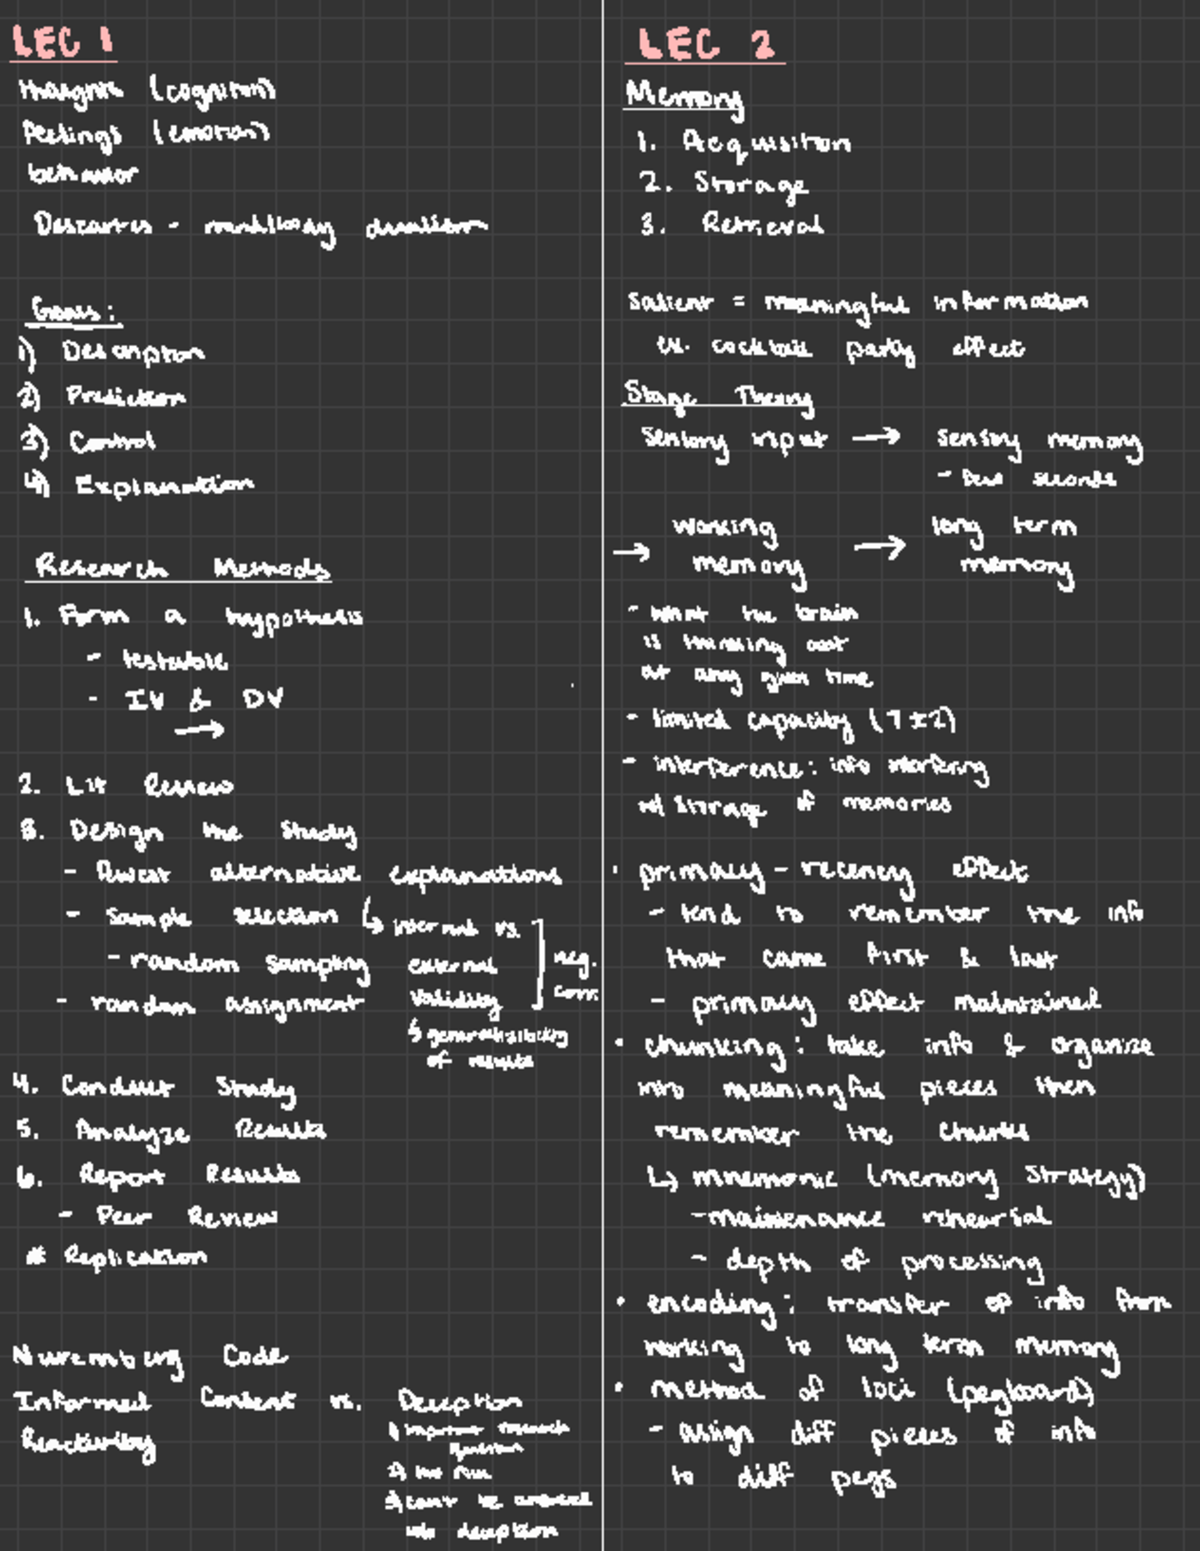 LEC 1
thoughts (cognition)
feelings (emotion)
behavior
Descartes - mind/body dualism
Goals:
1) Description
2) Prediction
3) Control
4) Explanation
Research Methods
1. Form a hypothesis
- testable
- IV & DV
→
2. Lit Review
3. Design the study
- Await alternative explanations
- sample selection ↳ internal vs.
- random sampling external ] neg.
- random assignment validity corr.
↳ generalizability
of results
4. Conduct Study
5. Analyze Results
6. Report Results
- Peer Review
* Replication
Nuremburg Code
Informed Consent vs. Deception
Reactivity
1) important research
question
2) low risk
3) can't be answered
w/o deception
LEC 2
Memory
1. Acquisition
2. Storage
3. Retrieval
Salient = meaningful information
ex. cocktail party effect
Stage Theory
Sensory input → sensory memory
- few seconds
→ working memory → long term memory
- what the brain
is thinking abt
at any given time
- limited capacity (7±2)
- interference: info interfering
w/ storage of memories
• primacy - recency effect
- tend to remember the info
that came first & last
- primacy effect maintained
• chunking: take info & organize
into meaningful pieces then
remember the chunks
↳ mnemonic (memory strategy)
- maintenance rehearsal
- depth of processing
• encoding: transfer of info from
working to long term memory
• method of loci (pegboard)
- assign diff pieces of info
to diff pegs